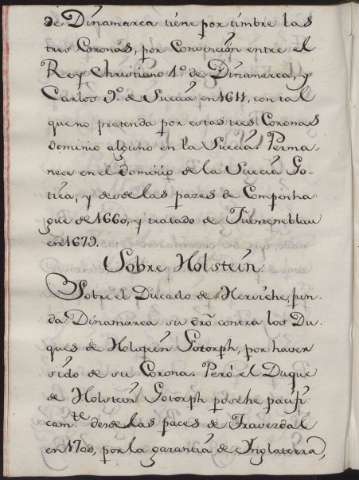 de Dinamarca tiene por timbre las
tres Coronas, por Convención entre el
Rey Christiano 1.º de Dinamarca, y
Carlos 9.º de Suecia en 1611, con tal
que no pretenda por estas tres Coronas
Dominio alguno en la Suecia. Perma
nece en el dominio de la Suecia Go-
tria, y desde las pazes de Compenha
gue de 1660, y tratado de
en 1679.
Sobre Holstein.
Sobre el Ducado de fun
da Dinamarca su dró contra los Du
ques de Gotorph, por haver
sido de su Corona. Peró el Duque
de Holstein Gotorph posehe pacifi
cam.te desde las paces de Travendal
en 1700, por la garantia de Inglaterra,